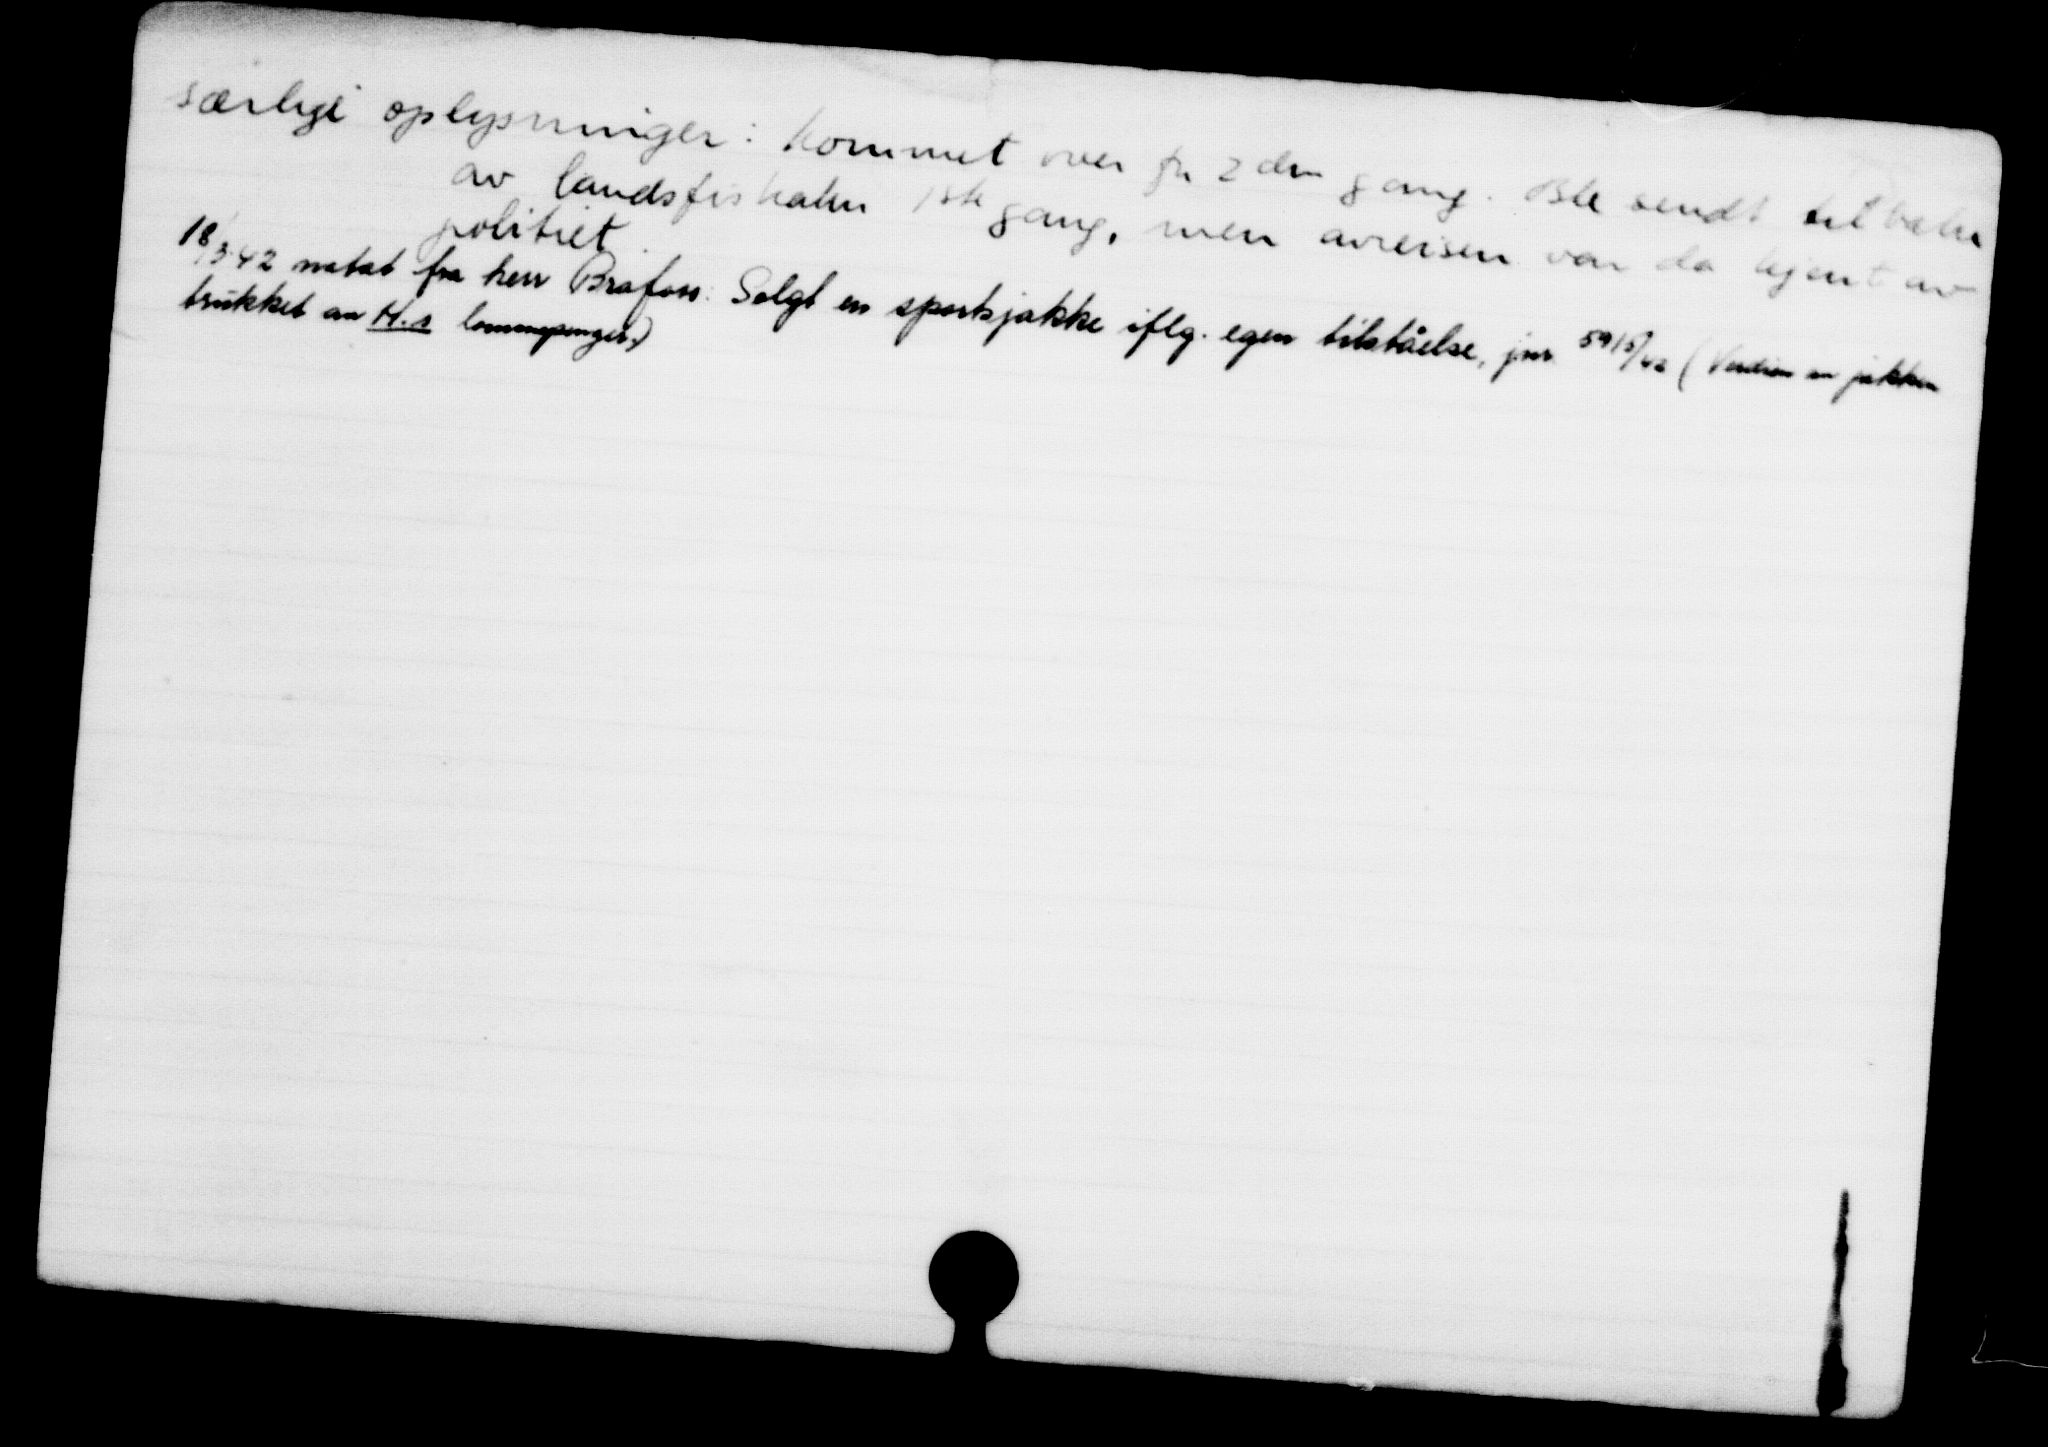 særlige oplysninger: Kommet over for 2den gang. Ble sendt tilbake
av landsfiskalen 1ste gang, men avreisen var da kjent av
politiet.
18/3.42 notat fra herr Brafoss: Solgt en sportsjakke iflg. egen tilståelse, jnr 5915/42 (Verdien av jakken
trukket av H.s lommepenger.)